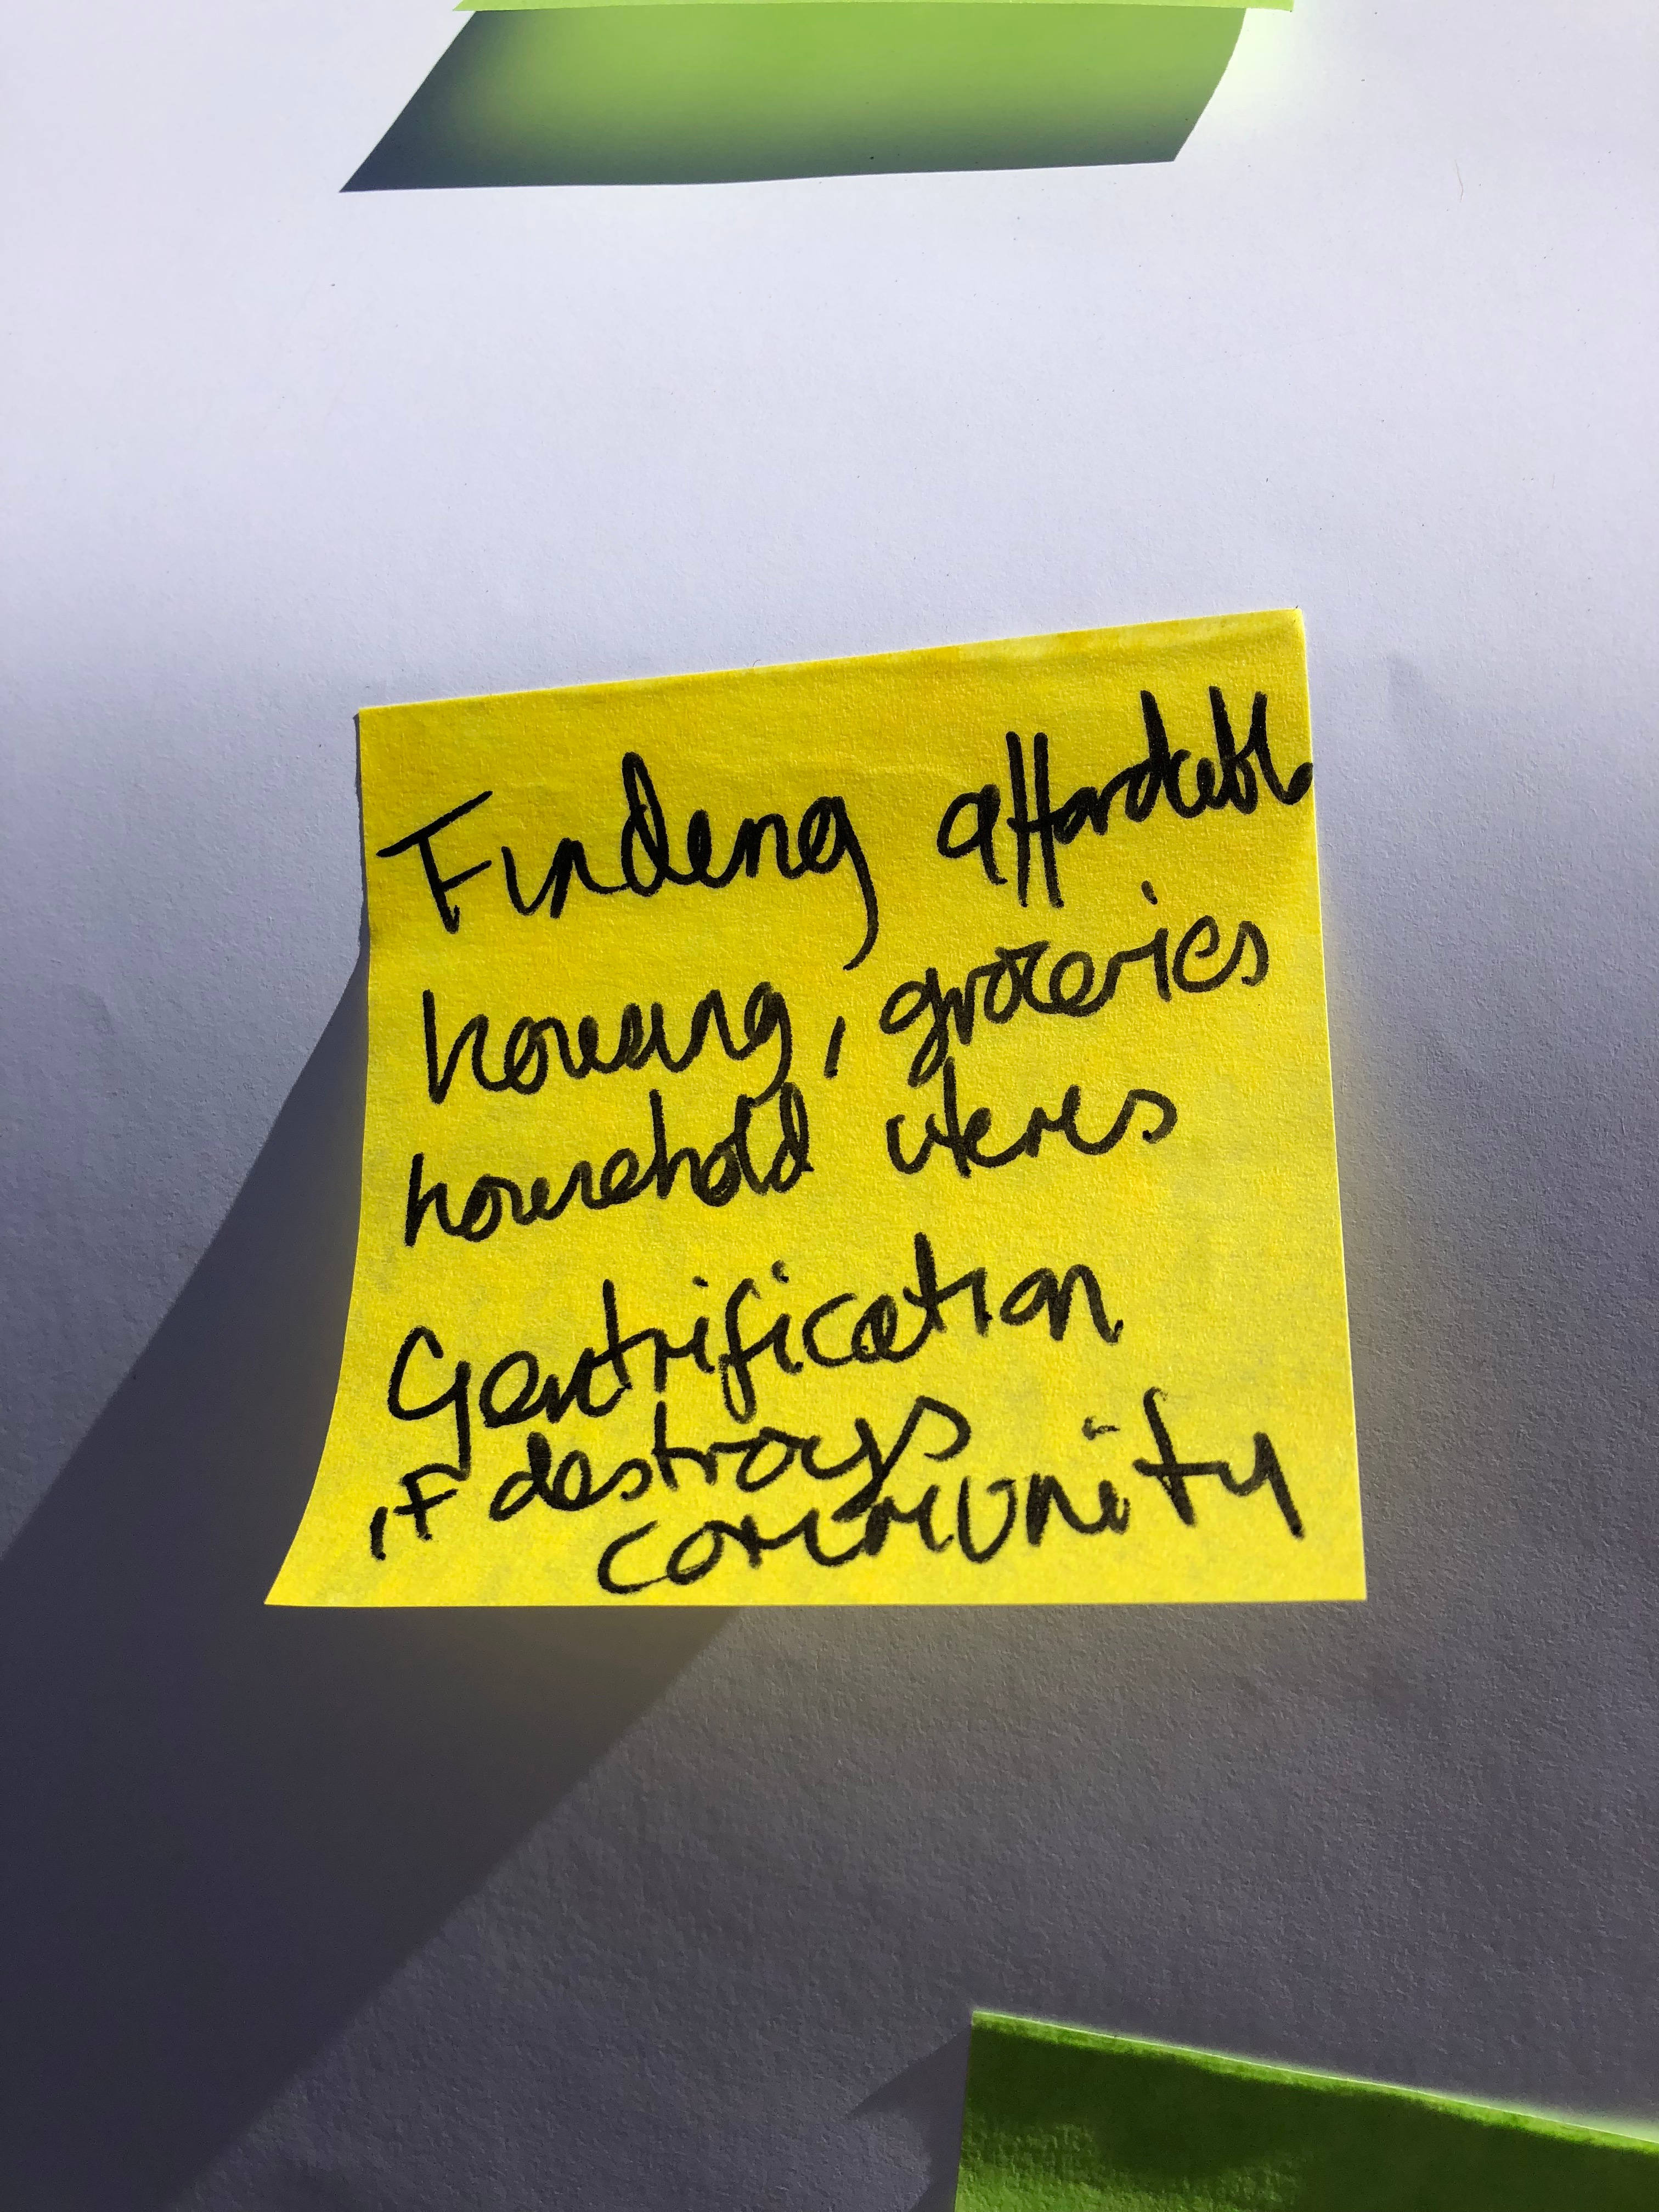 Finding affordable
housing, groceries
household items
Gentrification
if destroys
community